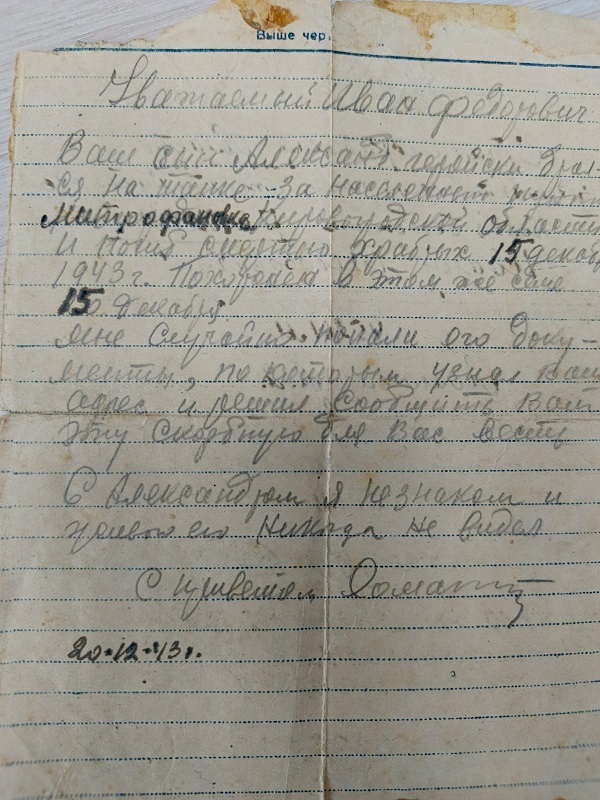 Выше чер
Уважаемый Иван Федорович
Ваш сын Александр геройски драл-
ся на танке за населенный пункт
Митрофановка Кировоградской области
и погиб смертью храбрых 15 декаб
1943 г. Похоронен в этом же селе
15 декабря
Мне случайно попали его доку-
менты, по которым узнал ваш
адрес и решил сообщить Вам
эту скорбную для Вас весть
С Александром я незнаком и
живого его никогда не видел
С приветом
20.12.43 г.